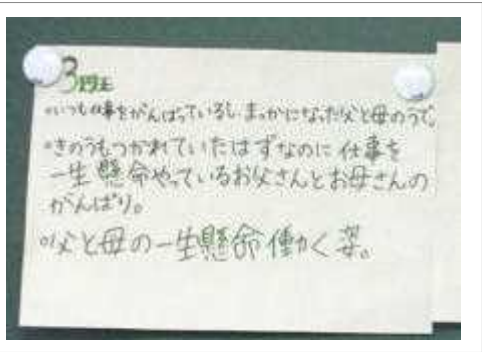 3班
・いつも仕事をがんばっているし、まっかになった父と母のうで。
・きのうもつかれていたはずなのに仕事を
一生懸命やっているお父さんとお母さんの
がんばり。
・父と母の一生懸命働く姿。